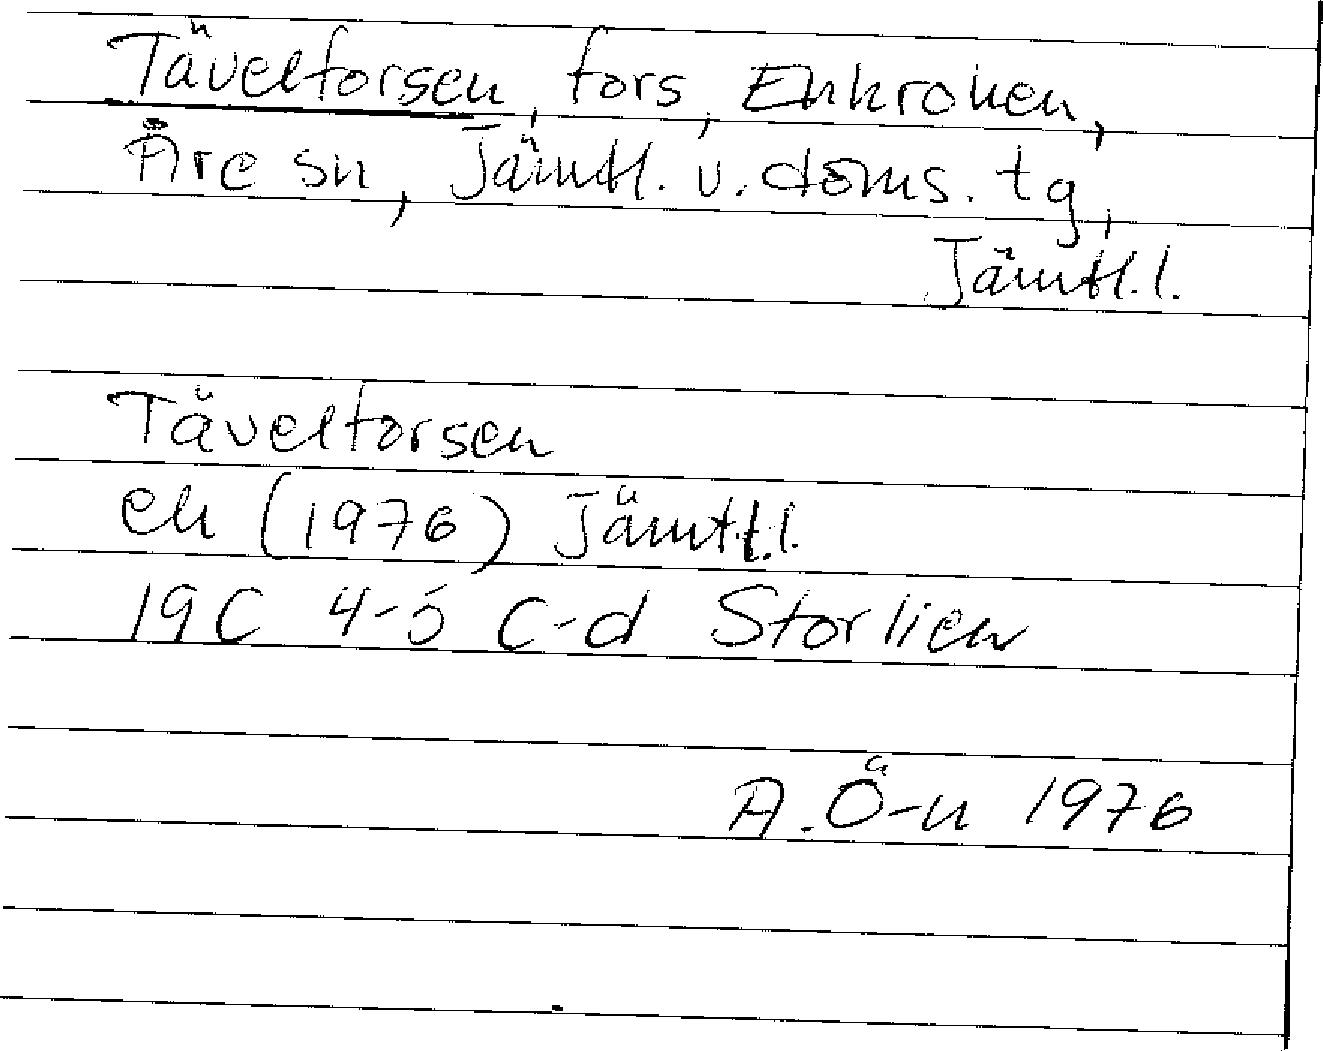 Tävelforsen, fors, Enkroken,
Åre sn, Jämtl. v. doms. tg,
Jämtl. l.
Tävelforsen
ek (1976) Jämtl. l.
19C 4-5 c-d Storlien
A. Ö-n 1976